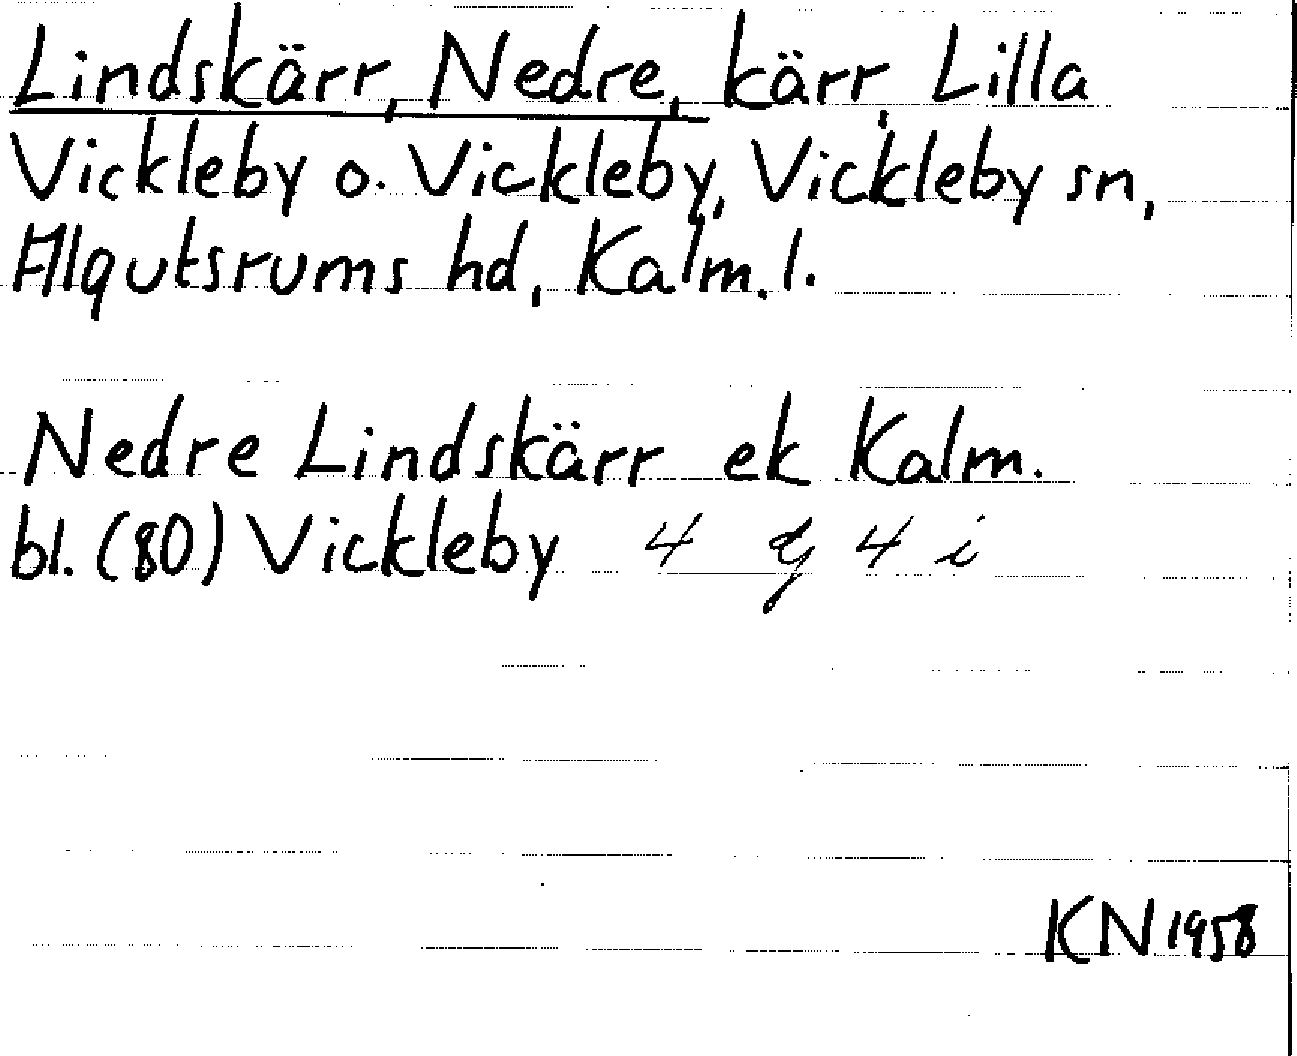 Lindskärr, Nedre, kärr, Lilla
Vickleby o. Vickleby, Vickleby sn,
Algutsrums hd, Kalm. l.
Nedre Lindskärr ek Kalm.
bl. (80) Vickleby 4 g 4 i
KN 1958